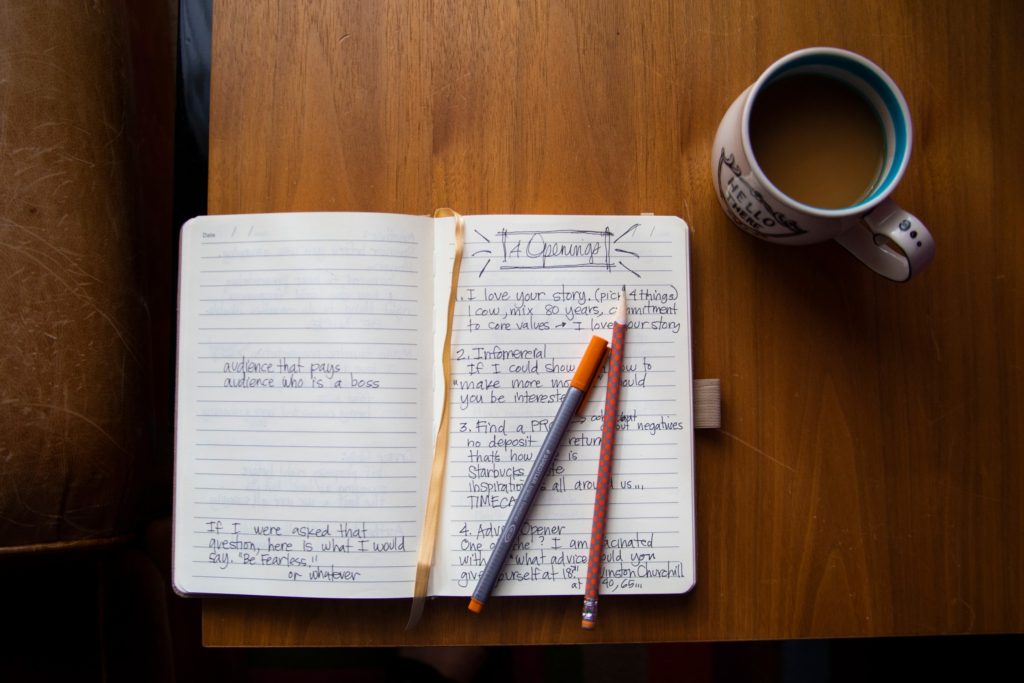 Date / /
audience that pays
audience who is a boss
If I were asked that
question, here is what I would
say. "Be Fearless."
or whatever
4 Openings
/ /
1. I love your story. (pick 4 things)
1 cow, mix 80 years, commitment
to core values → I love your story
2. Infomercial
If I could show to
"make more should
you be interested
3. Find a → about negatives
no deposit return
that's how is
Starbucks
inspiration is all around us...
4. Opener
One the'? I am facinated
with "what advice would you
give yourself at 18?" Winston Churchill
at 40, 65...
HELLO
THERE